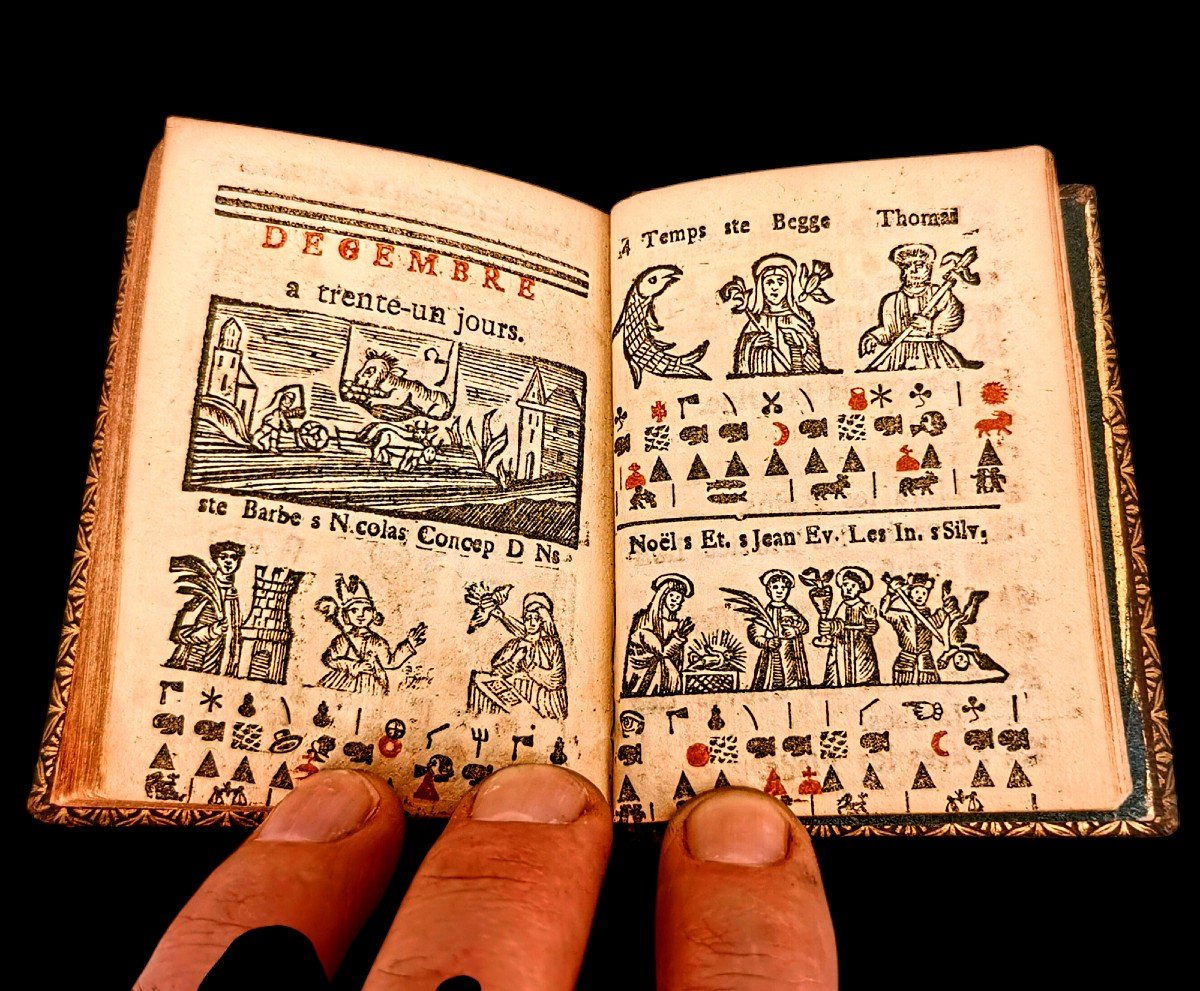 DECEMBRE
a trente-un jours.
ste Barbe s N.colas Concep D Ns
A Temps ste Begge Thomas
Noël s Et. s Jean Ev. Les In. s Silv.